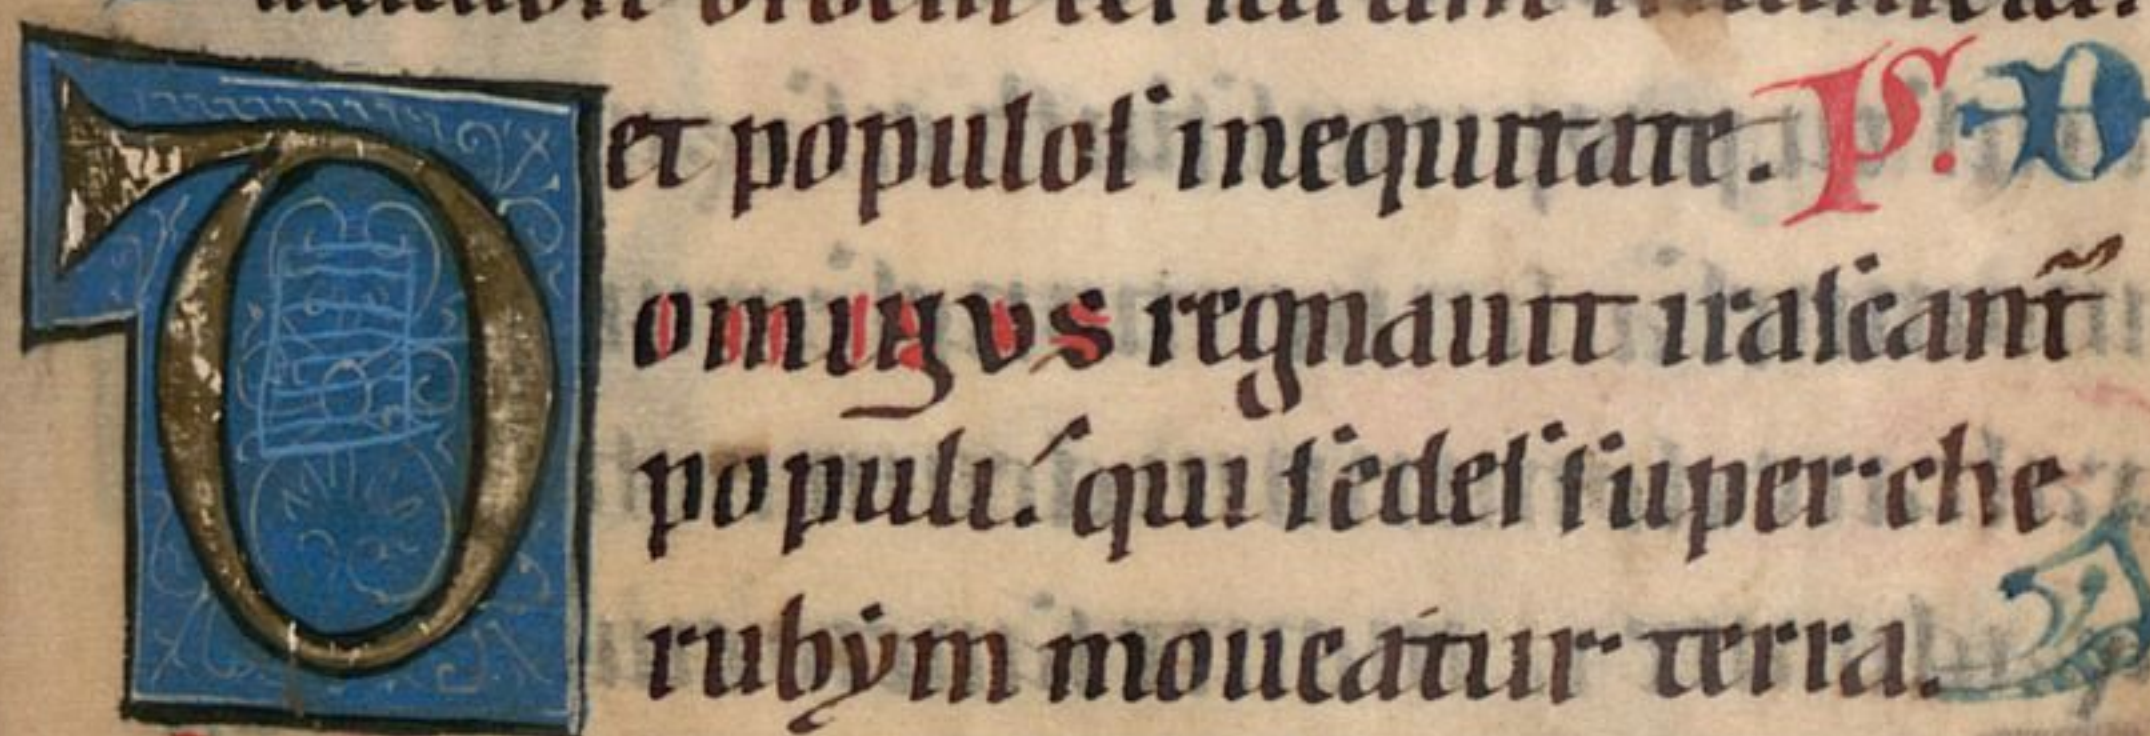 et populoſ inequitate. P. D
Dominus regnauit iraſcant᷑
populi. qui ſedeſ ſuper che
rubẏm moueatur terra.